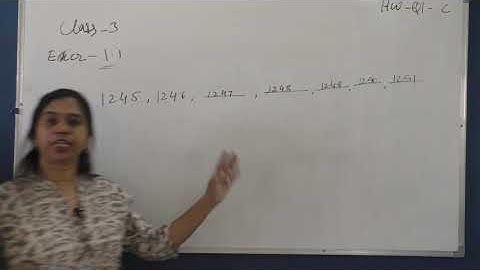 HW-Q1-C
Class-3
Exer-1.1
1245, 1246, 1247, 1248, 1249, 1250, 1251